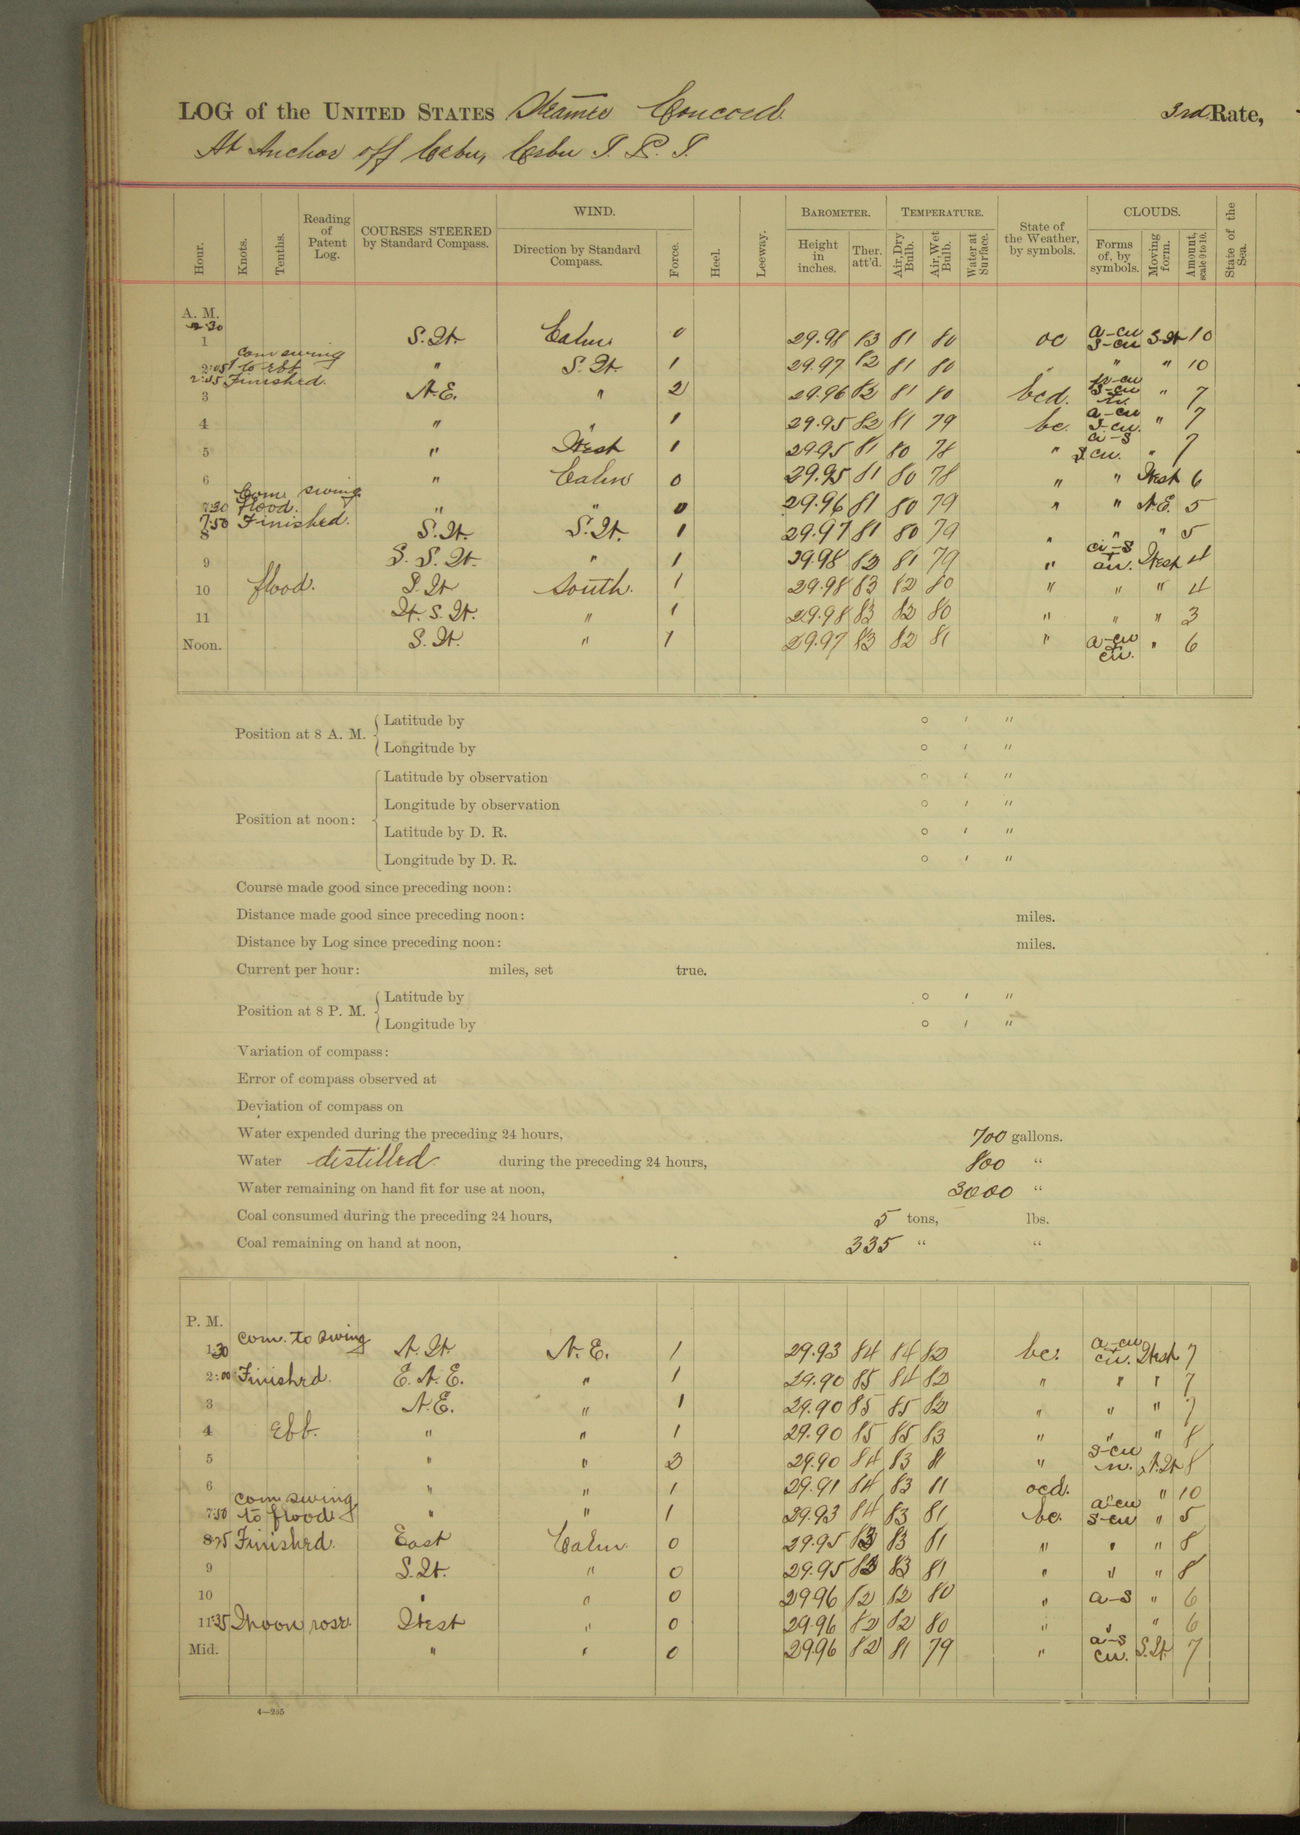 LOG of the UNITED STATES Steamer Concord 3rd Rate,
At Anchor off Cebu, Cebu I. P. I.
Hour. Knots. Tenths. Reading of Patent Log. COURSES STEERED by Standard Compass. WIND. Direction by Standard Compass. Force. Heel. Leeway. BAROMETER. Height in inches. Ther. att'd. TEMPERATURE. Air, Dry Bulb. Air, Wet Bulb. Water at Surface. State of the Weather, by symbols. CLOUDS. Forms of, by symbols. Moving form. Amount, scale 0 to 10. State of the Sea.
A. M.
1 S.W. Calm 0 29.98 83 81 80 oc a-cu s-cu S.W. 10
2:05 Com swing to ebb " S.W. 1 29.97 82 81 80 " " " 10
2:45 Finished.
3 N.E. " 2 29.96 82 81 80 bcd. s-cu " 7
4 " " 1 29.95 82 81 79 bc. a-cu s-cu. " 7
5 " West 1 29.95 81 80 78 " s cu. " 7
6 " Calm 0 29.95 81 80 78 " " West 6
7:30 Com. swing flood. " " 0 29.96 81 80 79 " " N.E. 5
7:50 Finished.
8 S.W. S.W. 1 29.97 81 80 79 " " " 5
9 S. S. W. " 1 29.98 82 81 79 " ci-s cu. West 4
10 flood. S.W. South. 1 29.98 83 82 80 " " " 4
11 W. S. W. " 1 29.98 83 82 80 " " " 3
Noon. S.W. " 1 29.97 83 82 81 " a-cu cu. " 6
Position at 8 A. M. Latitude by ° ′ ″
Longitude by ° ′ ″
Position at noon: Latitude by observation ° ′ ″
Longitude by observation ° ′ ″
Latitude by D. R. ° ′ ″
Longitude by D. R. ° ′ ″
Course made good since preceding noon:
Distance made good since preceding noon: miles.
Distance by Log since preceding noon: miles.
Current per hour: miles, set true.
Position at 8 P. M. Latitude by ° ′ ″
Longitude by ° ′ ″
Variation of compass:
Error of compass observed at
Deviation of compass on
Water expended during the preceding 24 hours, 700 gallons.
Water distilled during the preceding 24 hours, 800 "
Water remaining on hand fit for use at noon, 3000 "
Coal consumed during the preceding 24 hours, 5 tons, lbs.
Coal remaining on hand at noon, 335 " "
P. M.
1:30 com. to swing N.W. N.E. 1 29.93 84 84 82 bc. a-cu cu. West 7
2:00 Finished. E. N. E. " 1 29.90 85 84 82 " " " 7
3 N.E. " 1 29.90 85 85 82 " " " 7
4 Ebb. " " 1 29.90 85 85 83 " " " 8
5 " " 2 29.90 84 83 81 " s-cu n. N.W 8
6 " " 1 29.91 84 83 81 ocd. " " 10
7:50 com swing to flood. " " 1 29.93 84 83 81 bc. a-cu s-cu " 5
8:25 Finished. East Calm. 0 29.95 83 83 81 " " " 8
9 S.W. " 0 29.95 83 83 81 " " " 8
10 " " 0 29.96 82 82 80 " a-s " 6
11:35 Moon rose. West " 0 29.96 82 82 80 " " " 6
Mid. " " 0 29.96 82 81 79 " a-s cu. S.W. 7
4—235